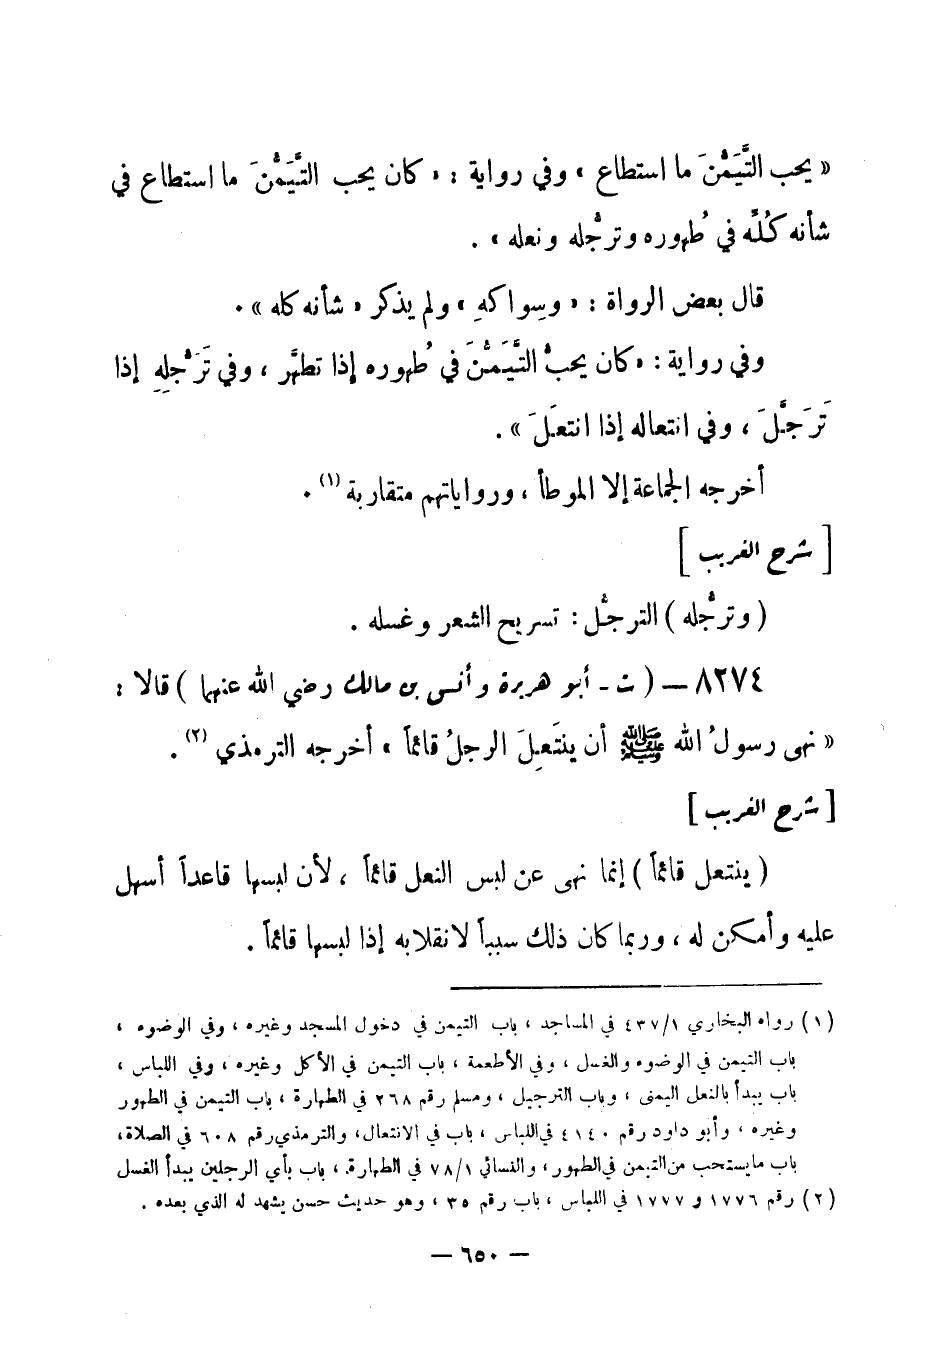 « يحب التَّيَمُّنَ ما استطاع » وفي رواية : « كان يحب التَّيَمُّنَ ما استطاع في
شأنه كُلِّه في طُهوره وترجُّله ونعله » .
قال بعض الرواة : « وسِواكهِ » ولم يذكر « شأنه كله » .
وفي رواية : « كان يحبُّ التَّيَمُّنَ في طُهوره إذا تطهَّر ، وفي تَرَجُّلِهِ إذا
تَرَجَّلَ ، وفي انتعاله إذا انتعَلَ » .
أخرجه الجماعة إلا الموطأ ، ورواياتهم متقاربة (١) .
[ شرح الغريب ]
( وترجُّله ) الترجُّل : تسريح الشعر وغسله .
٨٢٧٤ – ( ت - أبو هريرة وأنس بن مالك رضي الله عنهما ) قالا :
« نهى رسولُ الله ﷺ أن ينتَعِلَ الرجلُ قائماً » أخرجه الترمذي (٢) .
[ شرح الغريب ]
( ينتعل قائماً ) إنما نهى عن لبس النعل قائماً ، لأن لبسها قاعداً أسهل
عليه وأمكن له ، وربما كان ذلك سبباً لانقلابه إذا لبسها قائماً .
(١) رواه البخاري ٤٣٧/١ في المساجد ، باب التيمن في دخول المسجد وغيره ، وفي الوضوء ،
باب التيمن في الوضوء والغسل ، وفي الأطعمة ، باب التيمن في الأكل وغيره ، وفي اللباس ،
باب يبدأ بالنعل اليمنى ، وباب الترجيل ، ومسلم رقم ٢٦٨ في الطهارة ، باب التيمن في الطهور
وغيره ، وأبو داود رقم ٤١٤٠ في اللباس ، باب في الانتعال، والترمذي رقم ٦٠٨ في الصلاة،
باب ما يستحب من التيمن في الطهور ، والنسائي ٧٨/١ في الطهارة ، باب بأي الرجلين يبدأ الغسل
(٢) رقم ١٧٧٦ و ١٧٧٧ في اللباس ، باب رقم ٣٥ ، وهو حديث حسن يشهد له الذي بعده .
– ٦٥٠ –